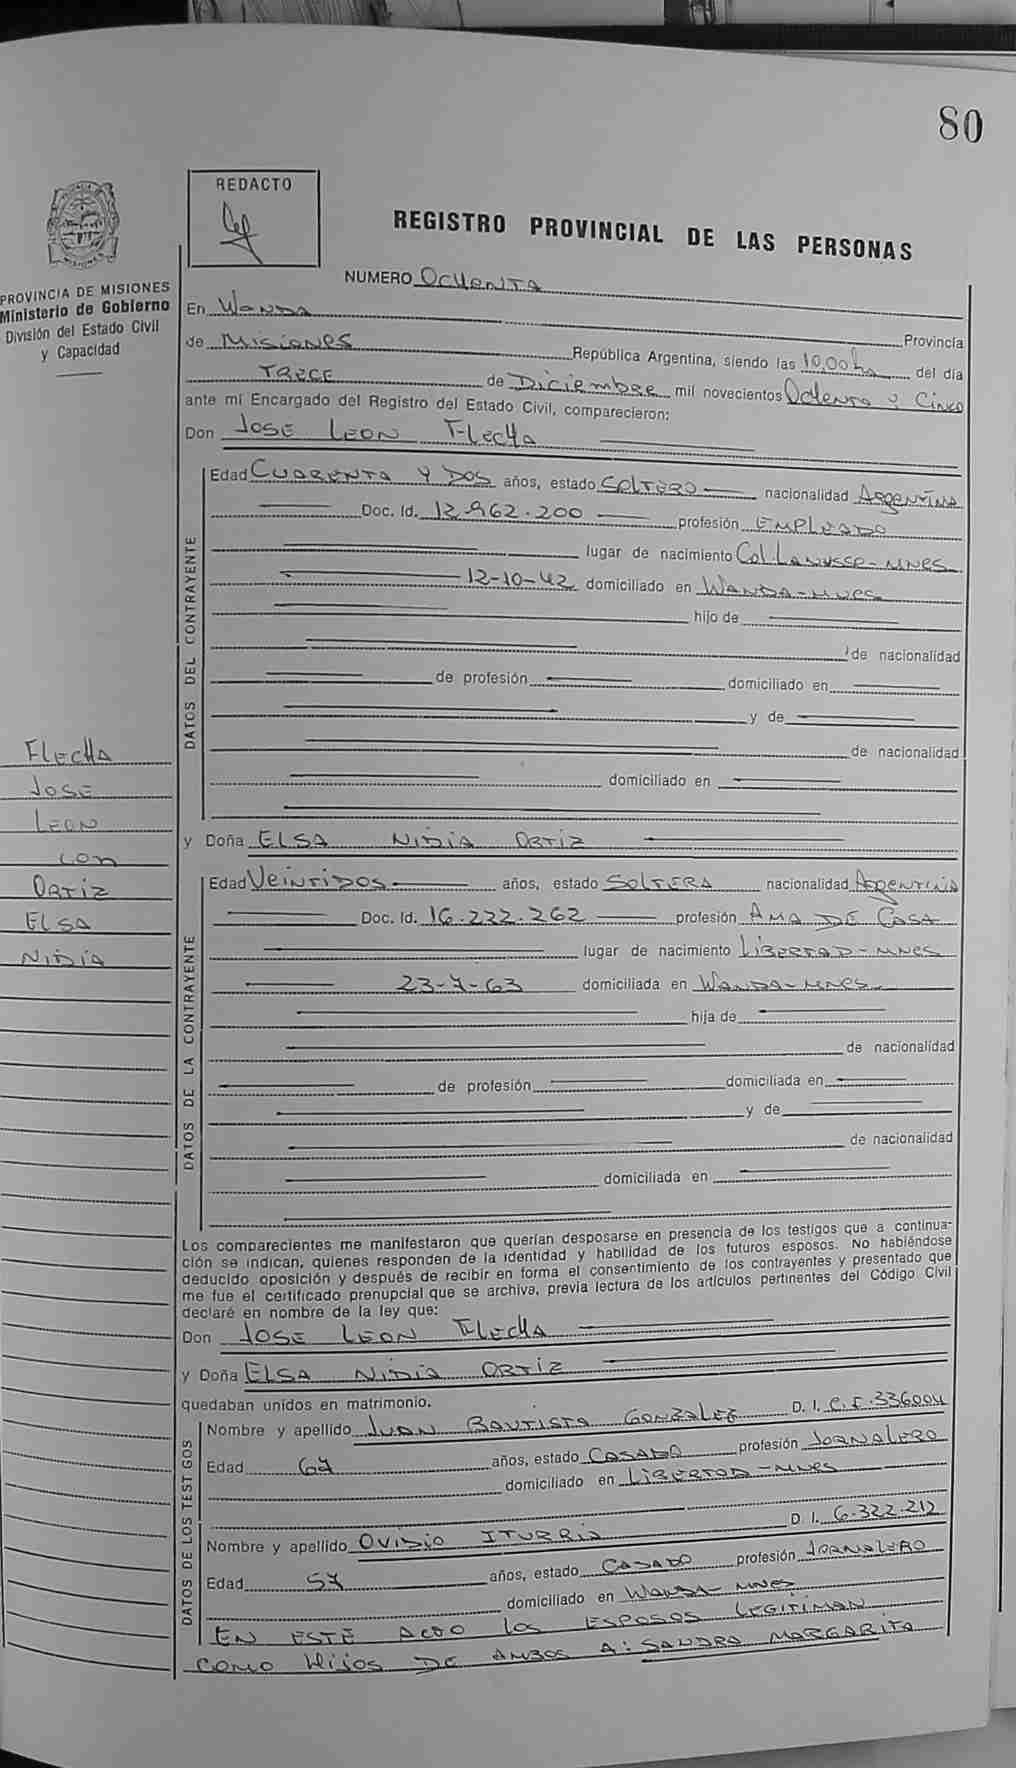 80
REDACTO
REGISTRO PROVINCIAL DE LAS PERSONAS
PROVINCIA DE MISIONES
Ministerio de Gobierno
División del Estado Civil
y Capacidad
NUMERO OCHENTA
En WANDA Provincia
de MISIONES República Argentina, siendo las 10,00 hs del día
TRECE de Diciembre mil novecientos Ochenta y Cinco
ante mi Encargado del Registro del Estado Civil, comparecieron:
Don JOSE LEON FLECHA
DATOS DEL CONTRAYENTE
Edad CUARENTA Y DOS años, estado SOLTERO nacionalidad ARGENTINA
Doc. Id. 12.962.200 profesión EMPLEADO
lugar de nacimiento Col. LANUSSE-MNES
12-10-42 domiciliado en WANDA-MNES
hijo de
de nacionalidad
de profesión domiciliado en
y de
de nacionalidad
domiciliado en
FLECHA
JOSE
LEON
con
ORTIZ
ELSA
NIDIA
y Doña ELSA NIDIA ORTIZ
DATOS DE LA CONTRAYENTE
Edad VEINTIDOS años, estado SOLTERA nacionalidad ARGENTINA
Doc. Id. 16.222.262 profesión AMA DE CASA
lugar de nacimiento LIBERTAD-MNES
23-7-63 domiciliada en WANDA-MNES
hija de
de nacionalidad
de profesión domiciliada en
y de
de nacionalidad
domiciliada en
Los comparecientes me manifestaron que querían desposarse en presencia de los testigos que a continua-
ción se indican, quienes responden de la identidad y habilidad de los futuros esposos. No habiéndose
deducido oposición y después de recibir en forma el consentimiento de los contrayentes y presentado que
me fue el certificado prenupcial que se archiva, previa lectura de los artículos pertinentes del Código Civil
declaré en nombre de la ley que:
Don JOSE LEON FLECHA
y Doña ELSA NIDIA ORTIZ
quedaban unidos en matrimonio.
DATOS DE LOS TEST GOS
Nombre y apellido JUAN BAUTISTA GONZALEZ D. I. C.I. 336004
Edad 67 años, estado CASADO profesión JORNALERO
domiciliado en LIBERTAD-MNES
D. I. 6.322.212
Nombre y apellido OVIDIO ITURRIA
Edad 57 años, estado CASADO profesión JORNALERO
domiciliado en WANDA-MNES
EN ESTE ACTO LOS ESPOSOS LEGITIMAN
COMO HIJOS DE AMBOS A: SANDRA MARGARITA